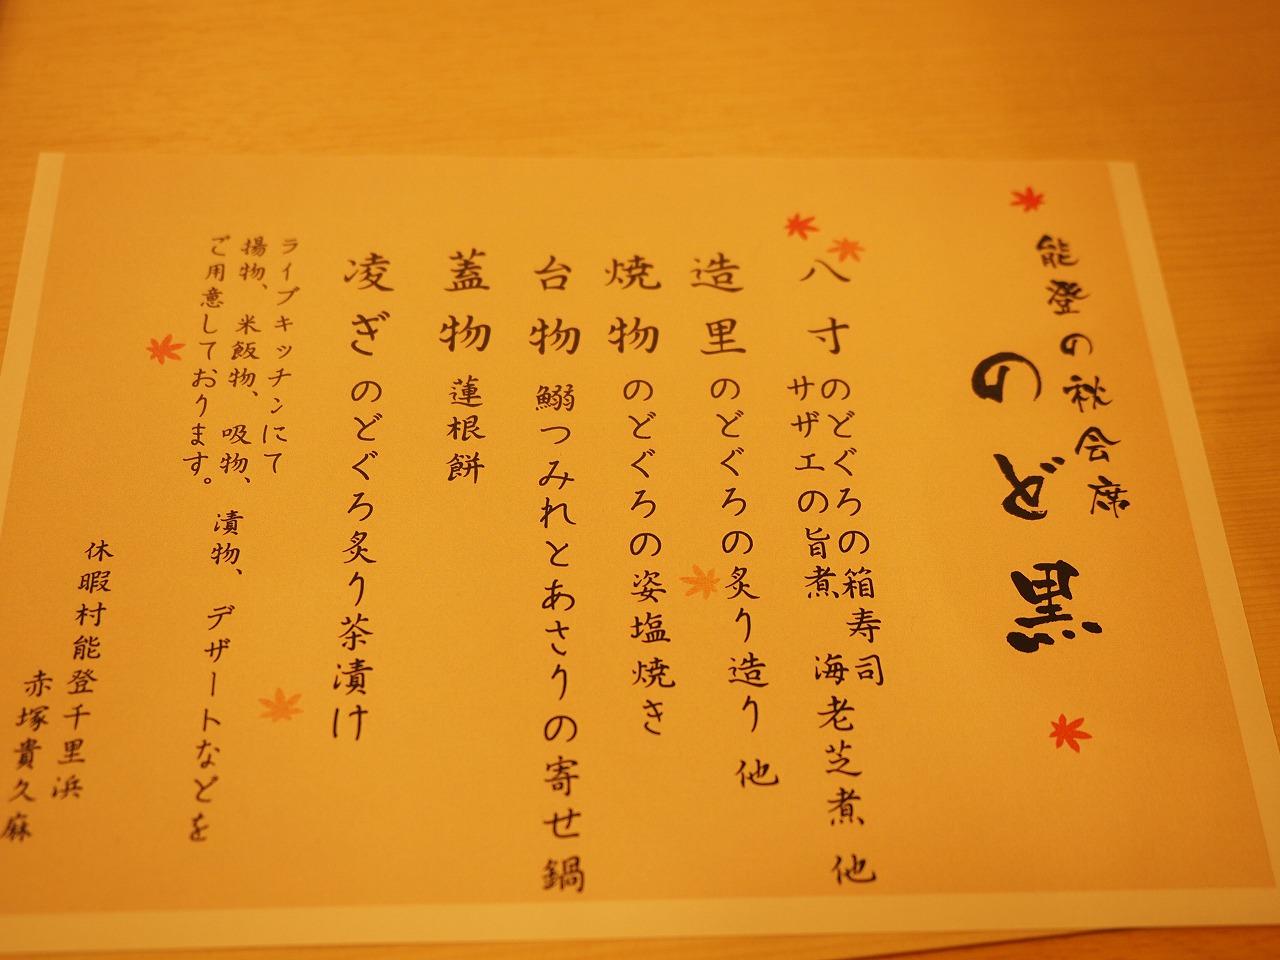 能登の秋会席
のど黒
八寸 のどぐろの箱寿司
サザエの旨煮 海老芝煮 他
造里 のどぐろの炙り造り 他
焼物 のどぐろの姿塩焼き
台物 鰯つみれとあさりの寄せ鍋
蓋物 蓮根餅
凌ぎ のどぐろ炙り茶漬け
ライブキッチンにて
揚物、米飯物、吸物、漬物、デザートなどを
ご用意しております。
休暇村能登千里浜
赤塚貴久麻